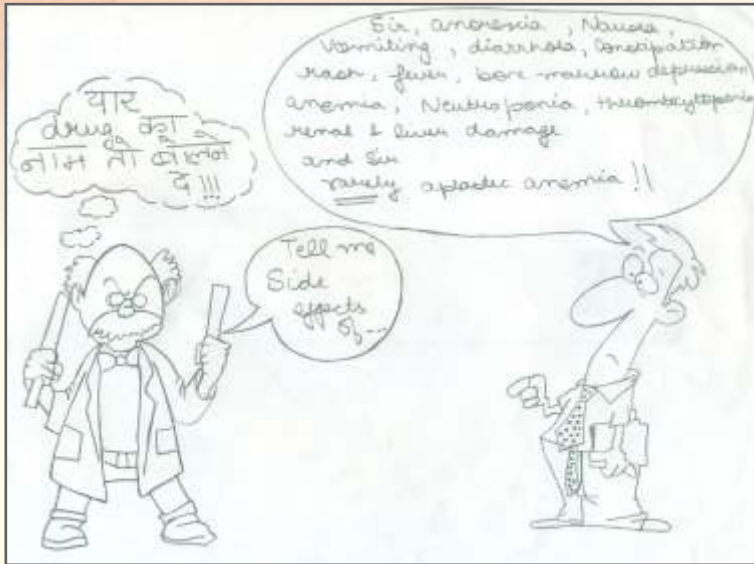 यार
drug का
नाम तो बोलने
दे !!!
Tell me
Side
effects
of ---
Sir, anorexia, Nausea,
Vomiting, diarrhoea, Constipation
rash, fever, bone-marrow depression
anemia, Neutroponia, thrombcytopenia
renal & liver damage
and Sir
rarely aplastic anemia !!